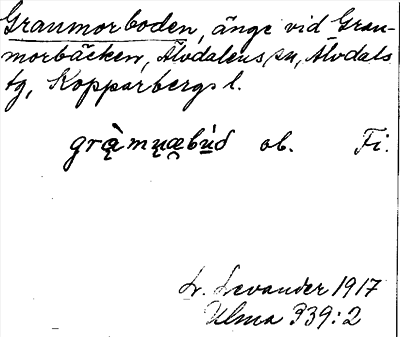 Granmorboden, änge vid Gran-
morbäcken, Älvdalens sn, Älvdals
tg, Kopparbergs l.
grą̀mų̄æ̯bų́d ob. Fi.
L. Levander 1917
Ulma 339:2